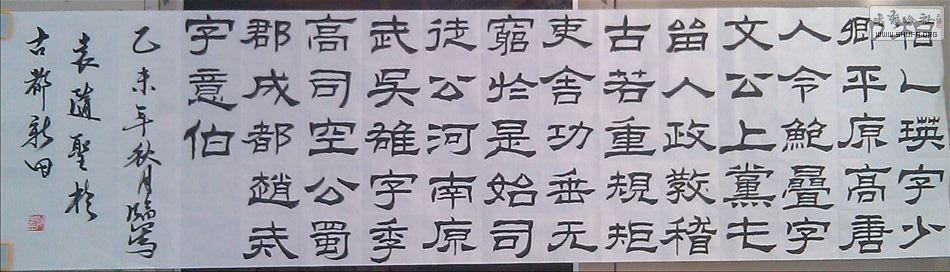 相乙瑛字少
卿平原高唐
人令鮑疊字
文公上黨屯
留人政教稽
古若重規矩
吏舍功垂无
窮於是始司
徒公河南原
武吳雄字季
高司空公蜀
郡成都趙戒
字意伯
乙未年秋月臨寫
袁隨聖於
古都新田
WWW.SHUFA.ORG